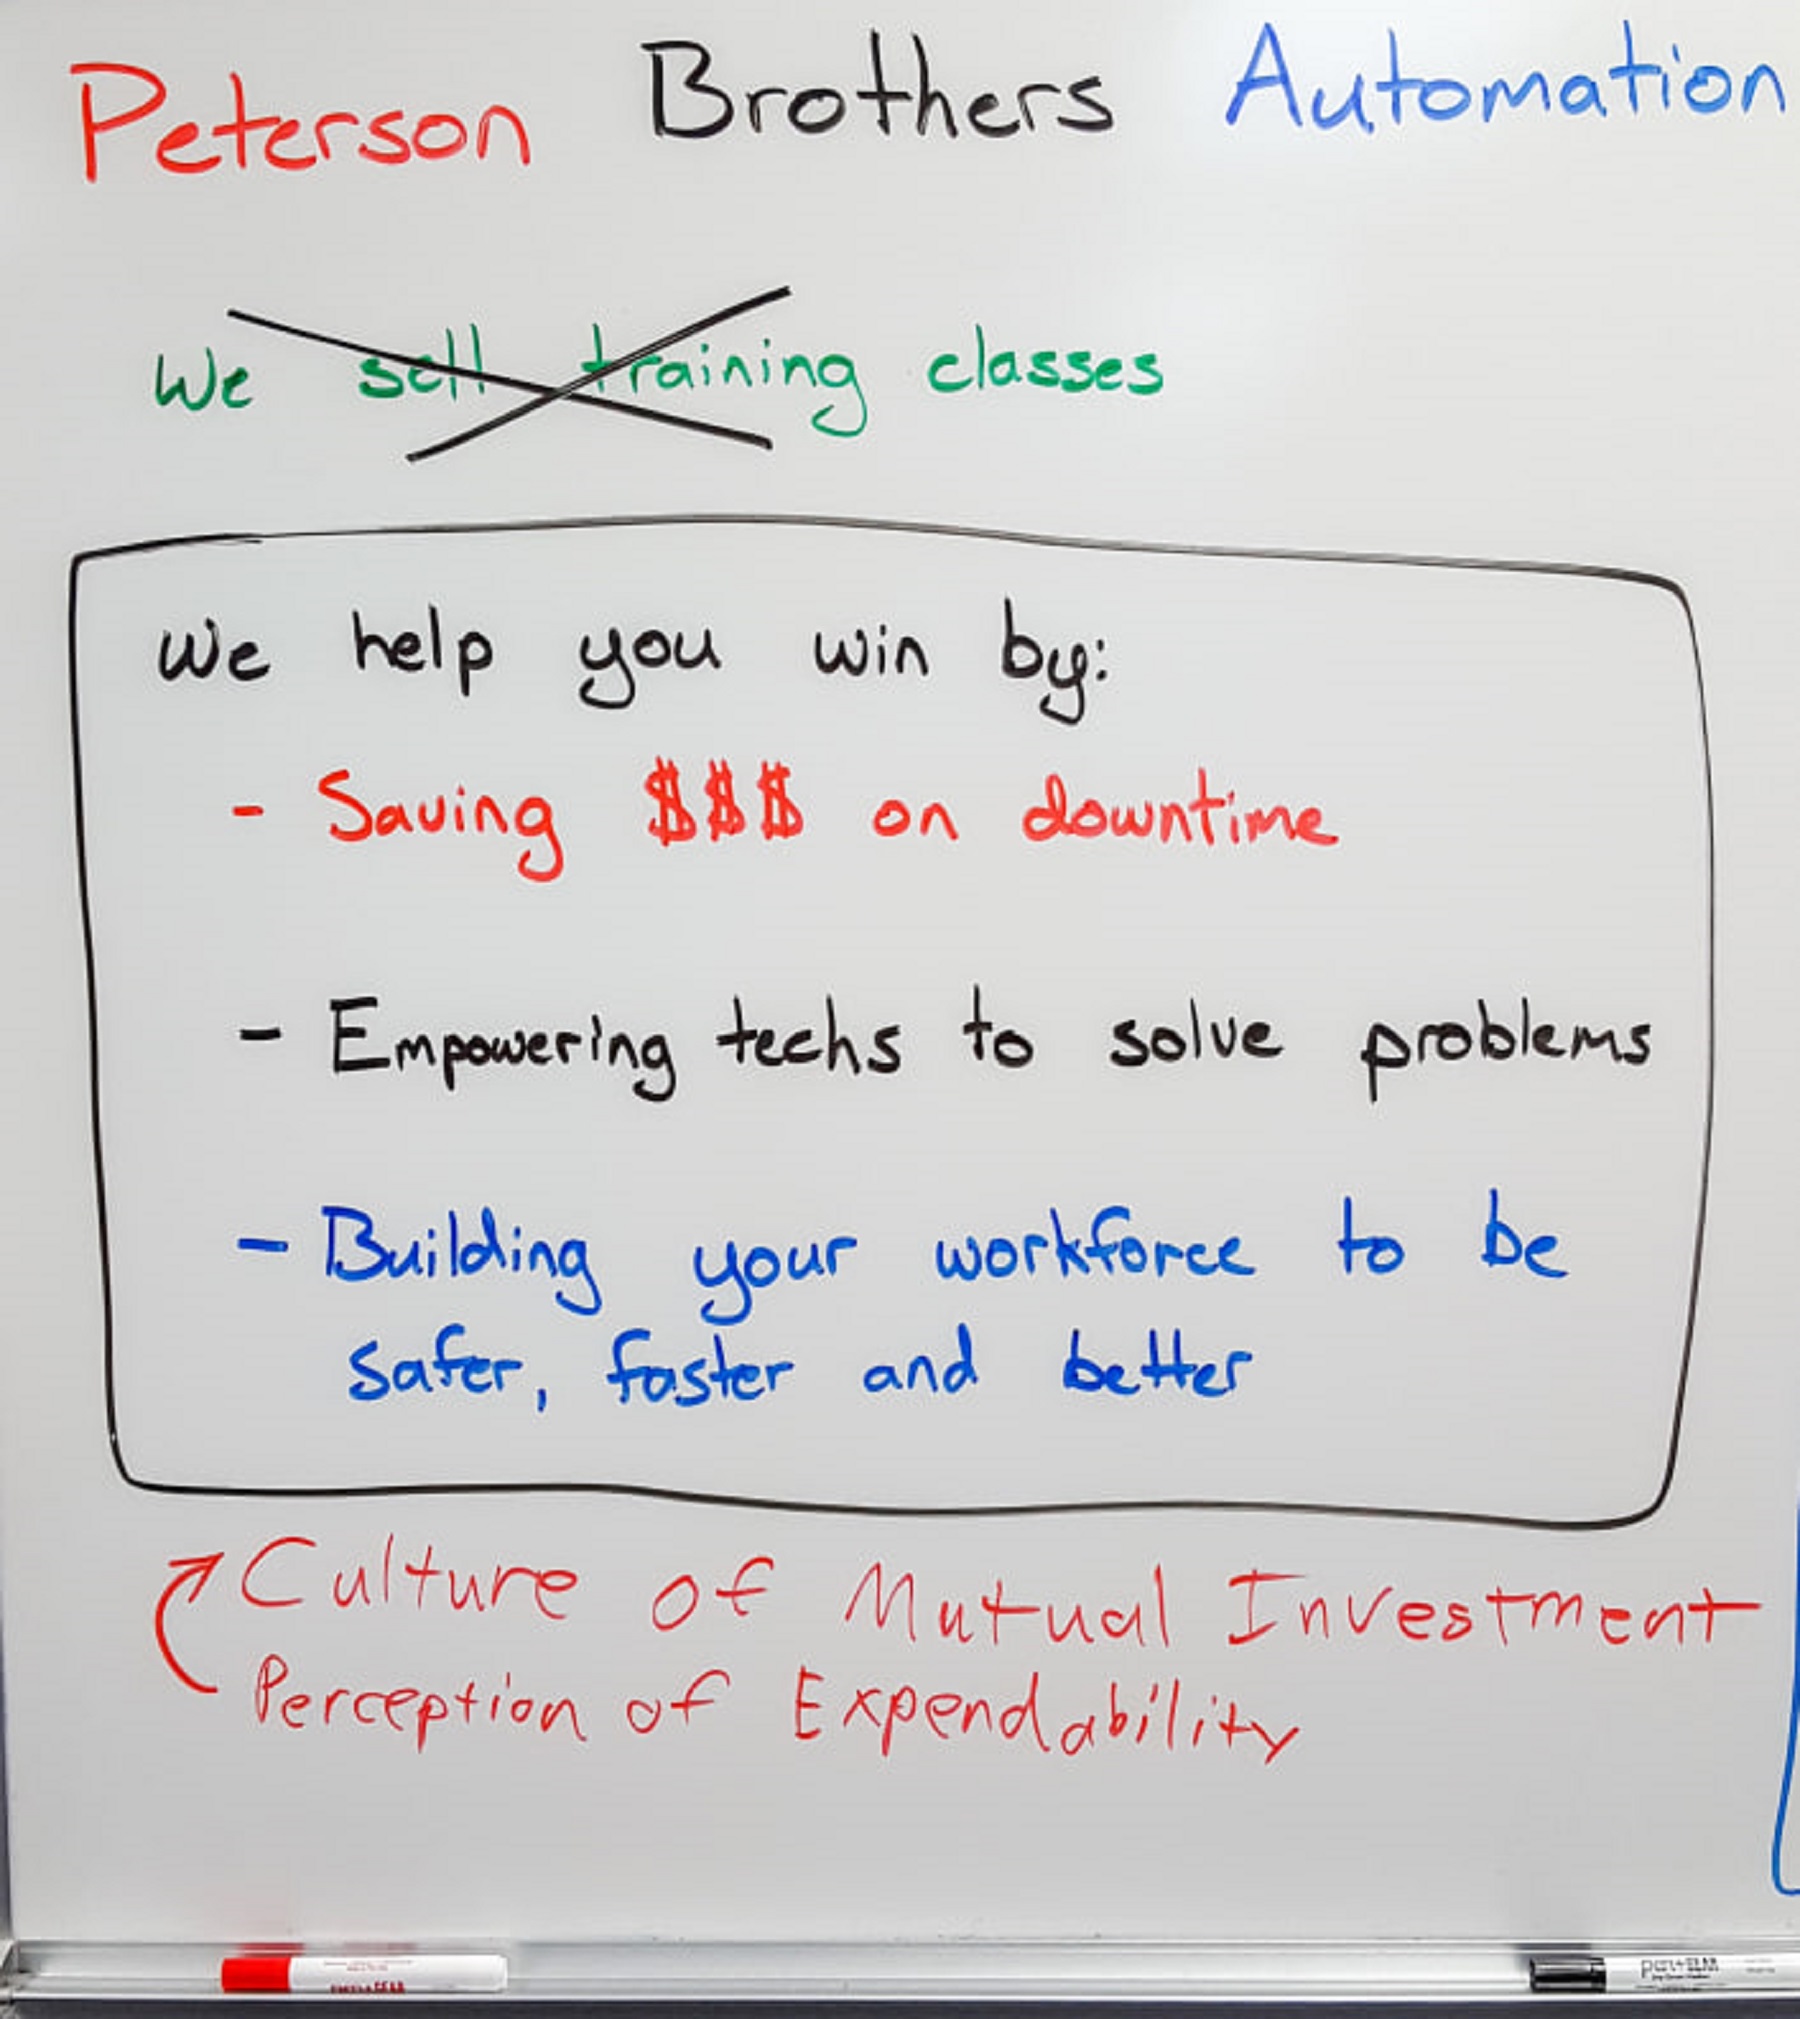 Peterson Brothers Automation
We sell training classes
We help you win by:
- Saving $$$ on downtime
- Empowering techs to solve problems
- Building your workforce to be
safer, faster and better
Culture of Mutual Investment
Perception of Expendability